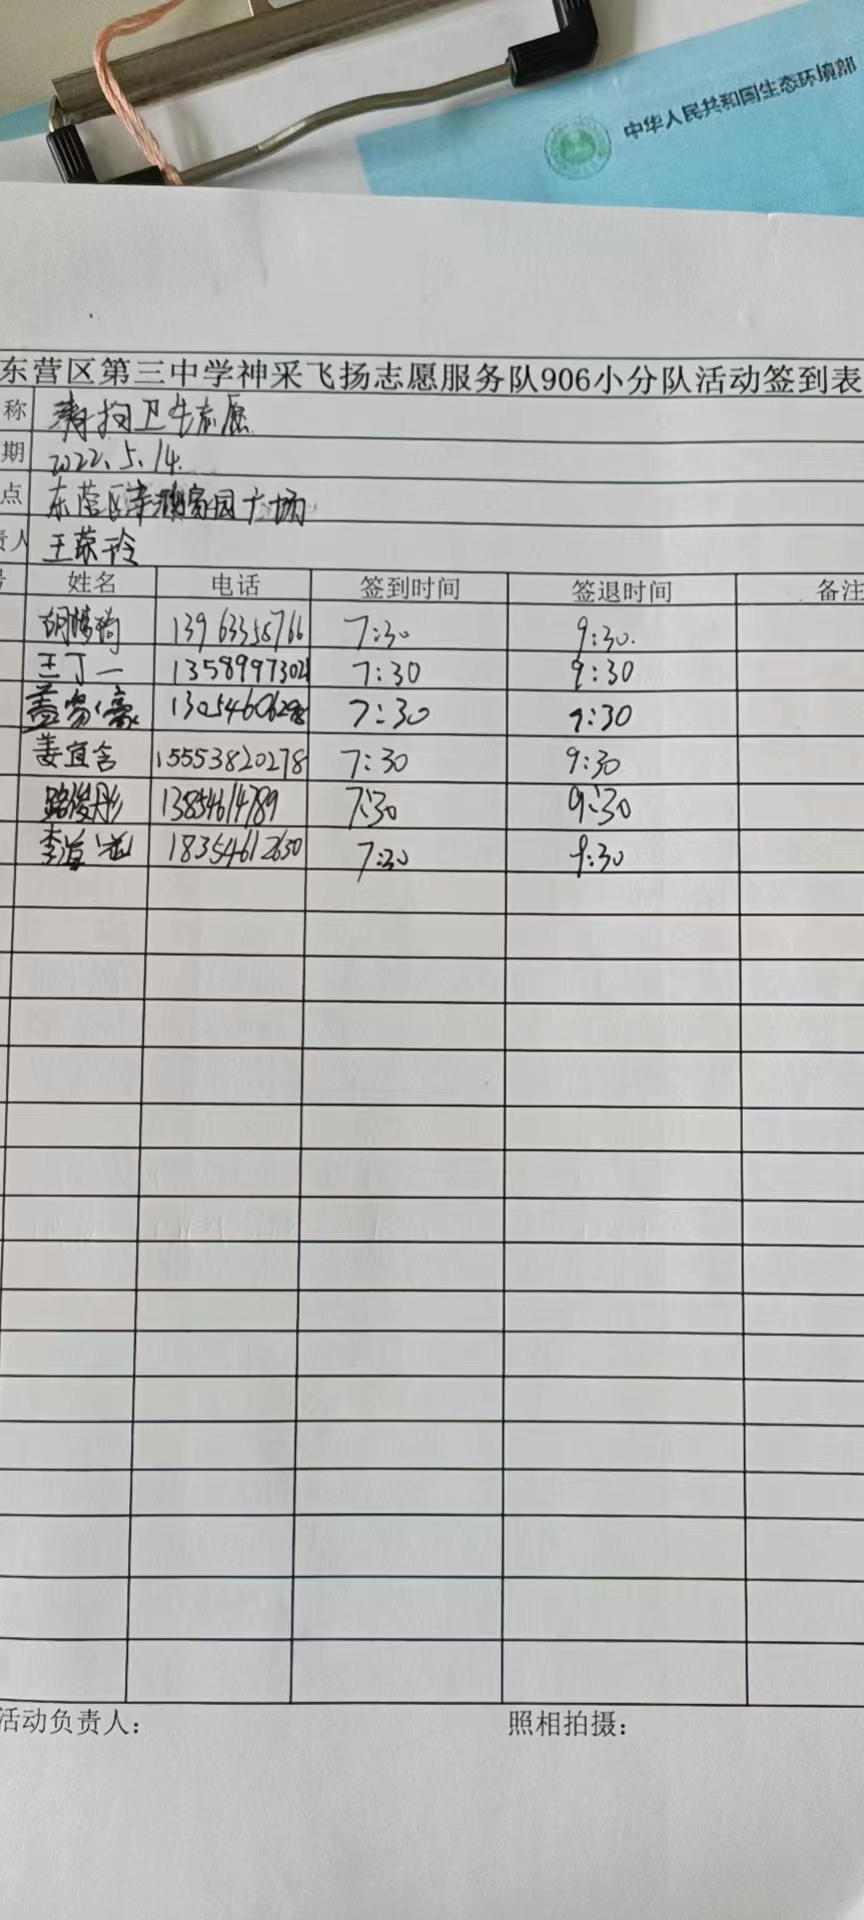 中华人民共和国生态环境部
东营区第三中学神采飞扬志愿服务队906小分队活动签到表
称 清扫卫生志愿
期 2022.5.14.
点 东营区幸福家园广场
责人 王荣玲
号 姓名 电话 签到时间 签退时间 备注
胡 13963355766 7:30 9:30.
王丁一 13589973021 7:30 9:30
盖 豪 13054606298 7:30 9:30
姜宜含 15553820278 7:30 9:30
路俊彤 13854614789 7:30 9:30
李 18354612650 7:30 9:30
活动负责人: 照相拍摄: